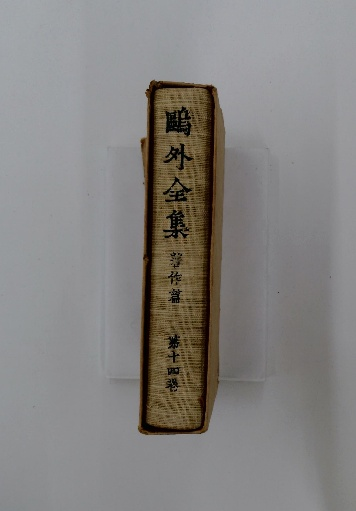 鷗外全集
著作篇
第十四巻